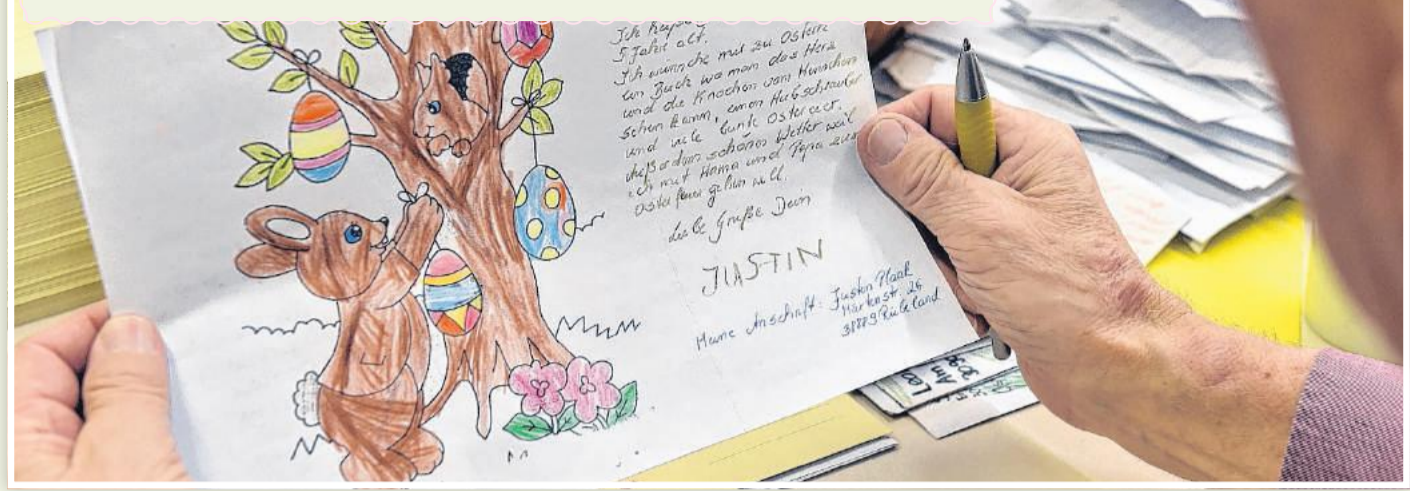 5 Jahre alt.
Ich wünsche mir zu Ostern
ein Buch wo man das Herz
und die Knochen vom Menschen
sehen kann, einen Hubschrauber
und viele bunte Ostereier.
Außerdem schönes Wetter weil
ich mit Mama und Papa zum
Osterfeuer gehen will.
Liebe Grüße Dein
JUSTIN
Meine Anschrift: Justin
38889 Rübeland